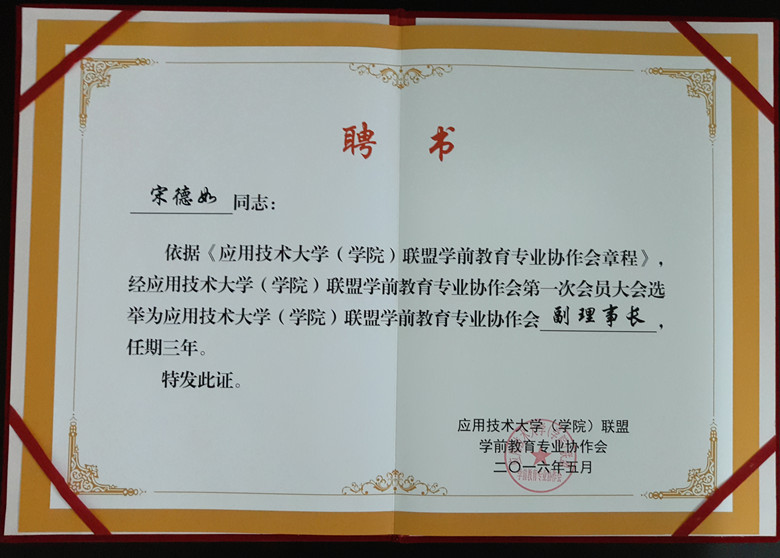 聘书
宋德如同志：
依据《应用技术大学（学院）联盟学前教育专业协作会章程》，
经应用技术大学（学院）联盟学前教育专业协作会第一次会员大会选
举为应用技术大学（学院）联盟学前教育专业协作会副理事长，
任期三年。
特发此证。
应用技术大学（学院）联盟
学前教育专业协作会
二〇一六年五月
学前教育专业协作会